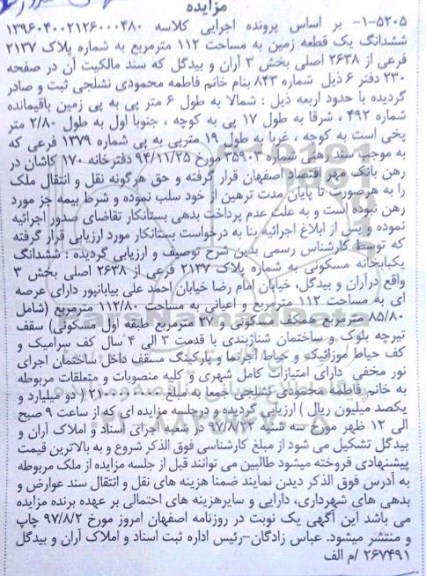 مزایده
۱-۵۲۰۵- بر اساس پرونده اجرایی کلاسه ۱۳۹۶۰۴۰۰۲۱۲۶۰۰۰۴۸۰
ششدانگ یک قطعه زمین به مساحت ۱۱۲ مترمربع به شماره پلاک ۲۱۳۷
فرعی از ۲۶۳۸ اصلی بخش ۳ آران و بیدگل که سند مالکیت آن در صفحه
۲۳۰ دفتر ۶ ذیل شماره ۸۴۳ بنام خانم فاطمه محمودی نشلجی ثبت و صادر
گردیده با حدود اربعه ذیل : شمالا به طول ۶ متر پی به پی زمین باقیمانده
شماره ۴۹۲ ، شرقا به طول ۱۷ پی به کوچه ، جنوبا اول به طول ۲/۸۰ متر
پخی است به کوچه ، غربا به طول ۱۹ مترپی به پی شماره ۱۳۷۹ فرعی که
به موجب سند رهنی شماره ۳۵۹۰۳ مورخ ۹۴/۱۱/۲۵ دفترخانه ۱۷۰ کاشان در
رهن بانک مهر اقتصاد اصفهان قرار گرفته و حق هرگونه نقل و انتقال ملک
را به هرصورت تا پایان مدت ترهین از خود سلب نموده و شرط بیمه جز مورد
رهن نبوده است و به علت عدم پرداخت بدهی بستانکار تقاضای صدور اجرائیه
نموده و پس از ابلاغ اجرائیه بنا به درخواست بستانکار مورد ارزیابی قرار گرفته
که توسط کارشناس رسمی بدین شرح توصیف و ارزیابی گردیده : ششدانگ
یکبابخانه مسکونی به شماره پلاک ۲۱۳۷ فرعی از ۲۶۳۸ اصلی بخش ۳
واقع درآران و بیدگل، خیابان امام رضا خیابان احمد علی بیابانپور دارای عرصه
ای به مساحت ۱۱۲ مترمربع و اعیانی به مساحت ۱۱۲/۸۰ مترمربع (شامل
۸۵/۸۰ مترمربع همکف مسکونی و ۲۷ مترمربع طبقه اول مسکونی) سقف
تیرچه بلوک و ساختمان شناژبندی با قدمت ۳ الی ۴ سال کف سرامیک و
کف حیاط موزائیک و حیاط آجرنما و پارکینگ مسقف داخل ساختمان اجرای
نور مخفی دارای امتیازات کامل شهری و کلیه منصوبات و متعلقات مربوطه
به خانم فاطمه محمودی نشلجی جمعا به مبلغ ( دو میلیارد و
یکصد میلیون ریال ) ارزیابی گردیده و درجلسه مزایده ای که از ساعت ۹ صبح
الی ۱۲ ظهر مورخ سه شنبه ۹۷/۸/۲۲ در شعبه اجرای اسناد و املاک آران و
بیدگل تشکیل می شود از مبلغ کارشناسی فوق الذکر شروع و به بالاترین قیمت
پیشنهادی فروخته میشود طالبین می توانند قبل از جلسه مزایده از ملک مربوطه
به آدرس فوق الذکر دیدن نمایند ضمنا هزینه های نقل و انتقال سند عوارض و
بدهی های شهرداری، دارایی و سایرهزینه های احتمالی بر عهده برنده مزایده
می باشد این آگهی یک نوبت در روزنامه اصفهان امروز مورخ ۹۷/۸/۲ چاپ
و منتشر میشود. عباس زادگان-رئیس اداره ثبت اسناد و املاک آران و بیدگل
۲۶۷۴۹۱ /م الف